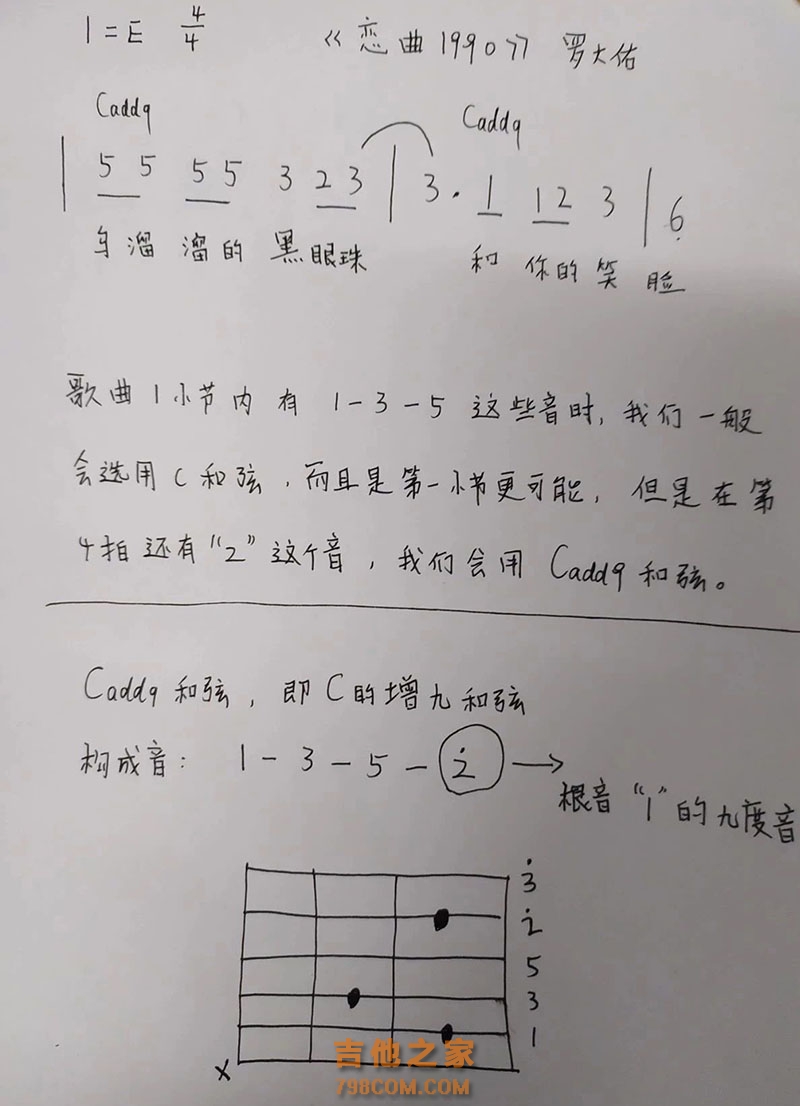 1=E 4/4 《恋曲1990》 罗大佑
Cadd9 Cadd9
| 5 5 5 5 3 2 3 | 3 · 1 1 2 3 | 6̣
乌溜溜的黑眼珠 和你的笑脸
歌曲1小节内有1-3-5这些音时,我们一般
会选用C和弦,而且是第一小节更可能,但是在第
4拍还有"2"这个音,我们会用Cadd9和弦。
Cadd9和弦,即C的增九和弦
构成音: 1-3-5-2̇ → 根音"1"的九度音
3̇
2̇
5
3
1
X
吉他之家
798COM.COM